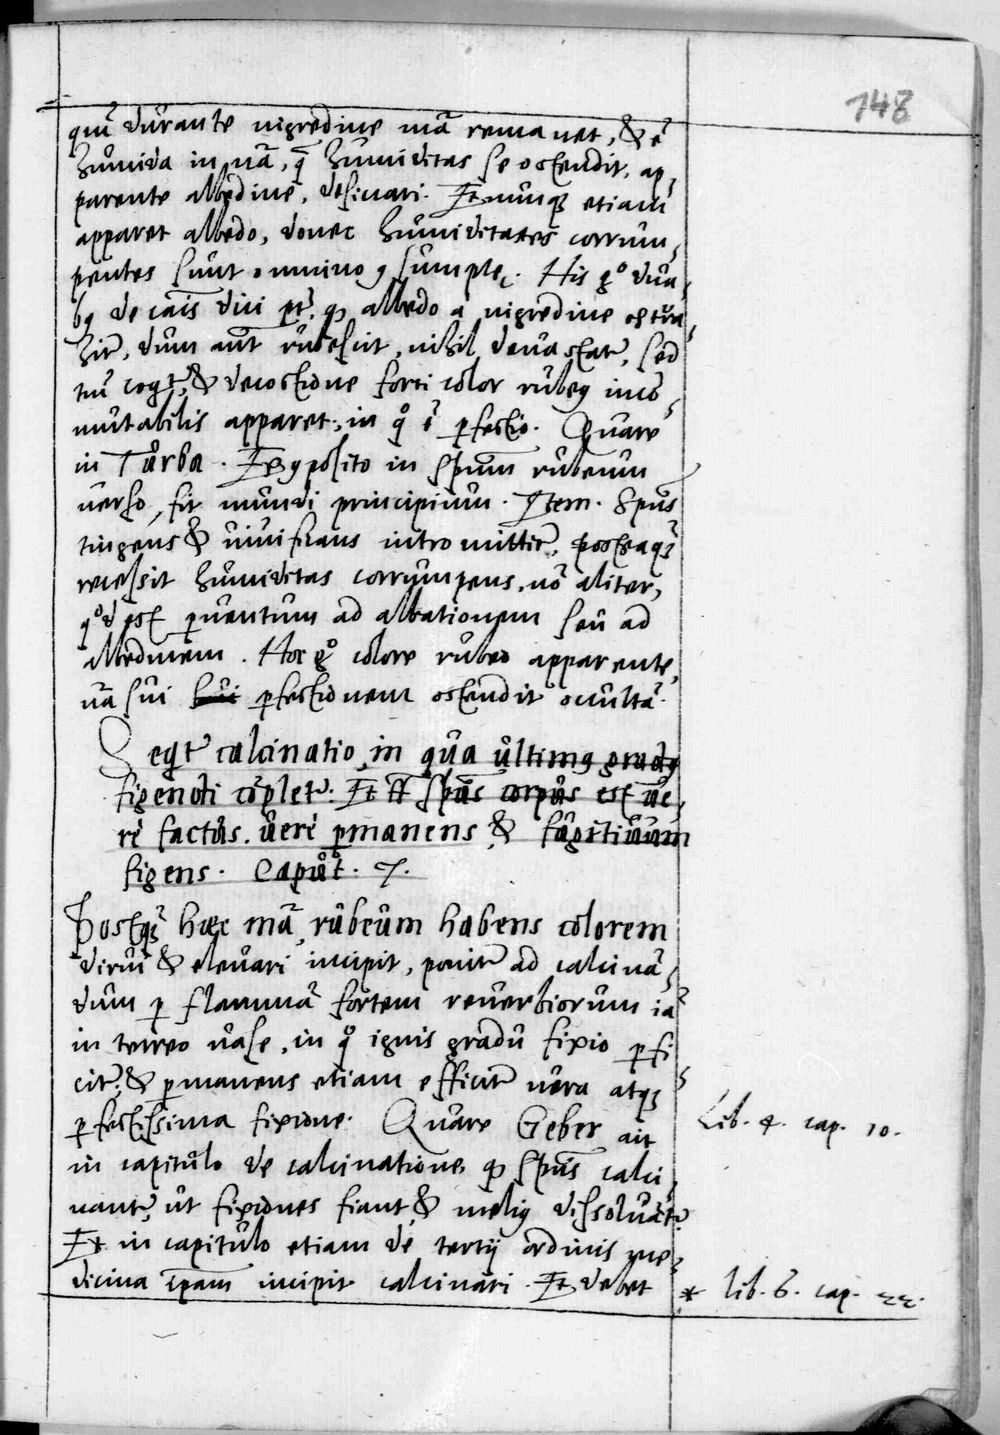 148
qui durante nigredine mā remanet, & ē
humida in nā, q̄ humiditas se ostendit, ap-
parente albedine, desinari. Et nunq̃ etiam
apparet albedo, donec humiditates corrum-
pentes sunt omnino ꝯsumptę. His gͦ dua-
bꝰ de cāis dici pt̄, qꝫ albedo a nigredine extra-
hit̄, dum aūt rubescit, nihil devastat̄, sed
tm̄ cogit̄, & decoctione forti color rubeꝰ incō-
mutabilis apparet, in qͦ ē ꝑfectio. Quare
in Turba. Et ꝯposito in spūm rubeum
verso, fit mundi principium. Item. Spūs
tingens & vivificans intromittit̄, posteaq̃
recessit humiditas corrumpens, nō aliter,
qͦd est ꝑventum ad albationem seu ad
albedinem. Hoc gͦ colore rubeo apparente,
nā sui ꝑfectionem ostendit occultā.
Seqt̄ calcinatio, in qua ultimꝰ gradꝰ
figendi cōplet̄. Et sic spūs corpus est ve-
re factus, vere ꝑmanens & fugitivum
figens. Caput. 7.
Postq̃ hæc mā, rubeum habens colorem
dirui & elevari incipit, ponit̄ ad calcinā-
dum ꝑ flammā fortem reverbiorum iā
in terreo vase, in qͦ ignis gradu fixio ꝑfi-
cit̄, & ꝑmanens etiam efficit̄ vera atqꝫ
ꝑfectissima fixione. Quare Geber ait
in capitulo de calcinatione, qꝫ spūs calci-
nant̄, ut fixiones fiant, & meliꝰ dissolvāt̄.
Et in capitulo etiam de tertij ordinis me-
dicina ipam incipit calcinari. Et debet
Lib. 4. cap. 10.
* lib. 6. cap. 22.